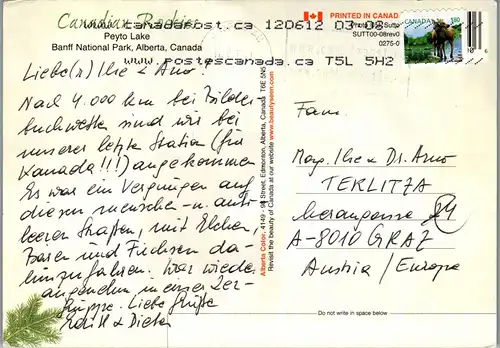 Canadian Rockies
www.canadapost.ca 120612 03:08
Peyto Lake
Banff National Park, Alberta, Canada
www.postescanada.ca T5L 5H2
PRINTED IN CANAD
Sutto
SUTT00-08rev0
0275-0
CANADA 180
Liebe(r) Ilse & Arno!
Nach 4.000 km bei Bilder
buchwetter sind wir bei
unserer letzten Station (für
Kanada!!!) angekommen
Es war ein Vergnügen auf
diesen menschen- u. auto
leeren Straßen, mit Elchen,
Bären und Füchsen da-
hinzufahren. War wieder
angenehm in einer 2er-
gruppe. Liebe Grüße
& Dieter
Alberta Color, 4149 - 98 Street, Edmonton, Alberta, Canada T6E 5N5
Revisit the beauty of Canada at our website www.beautyseen.com
Fam.
Mag. Ilse & Dr. Arno
TERLITZA
84
A-8010 GRAZ
Austria / Europe
Do not write in space below